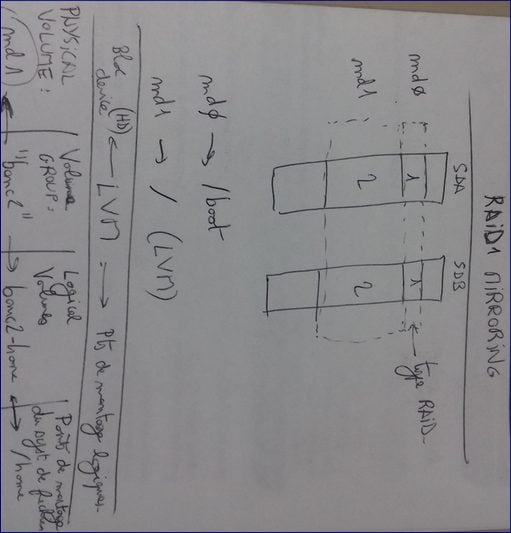 RAID1 MIRRORING
SDA SDB
mdø 1 1 ← type RAID
md1 2 2
mdø → /boot
md1 → / (LVM)
Bloc device (HD) ← LVM : → Pts de montage logiques.
PHYSICAL VOLUME : | Volume GROUP : | Logical Volumes | Points de montage du syst de fichier
/md1 ← "bomc2" → bomc2-home ↔ /home